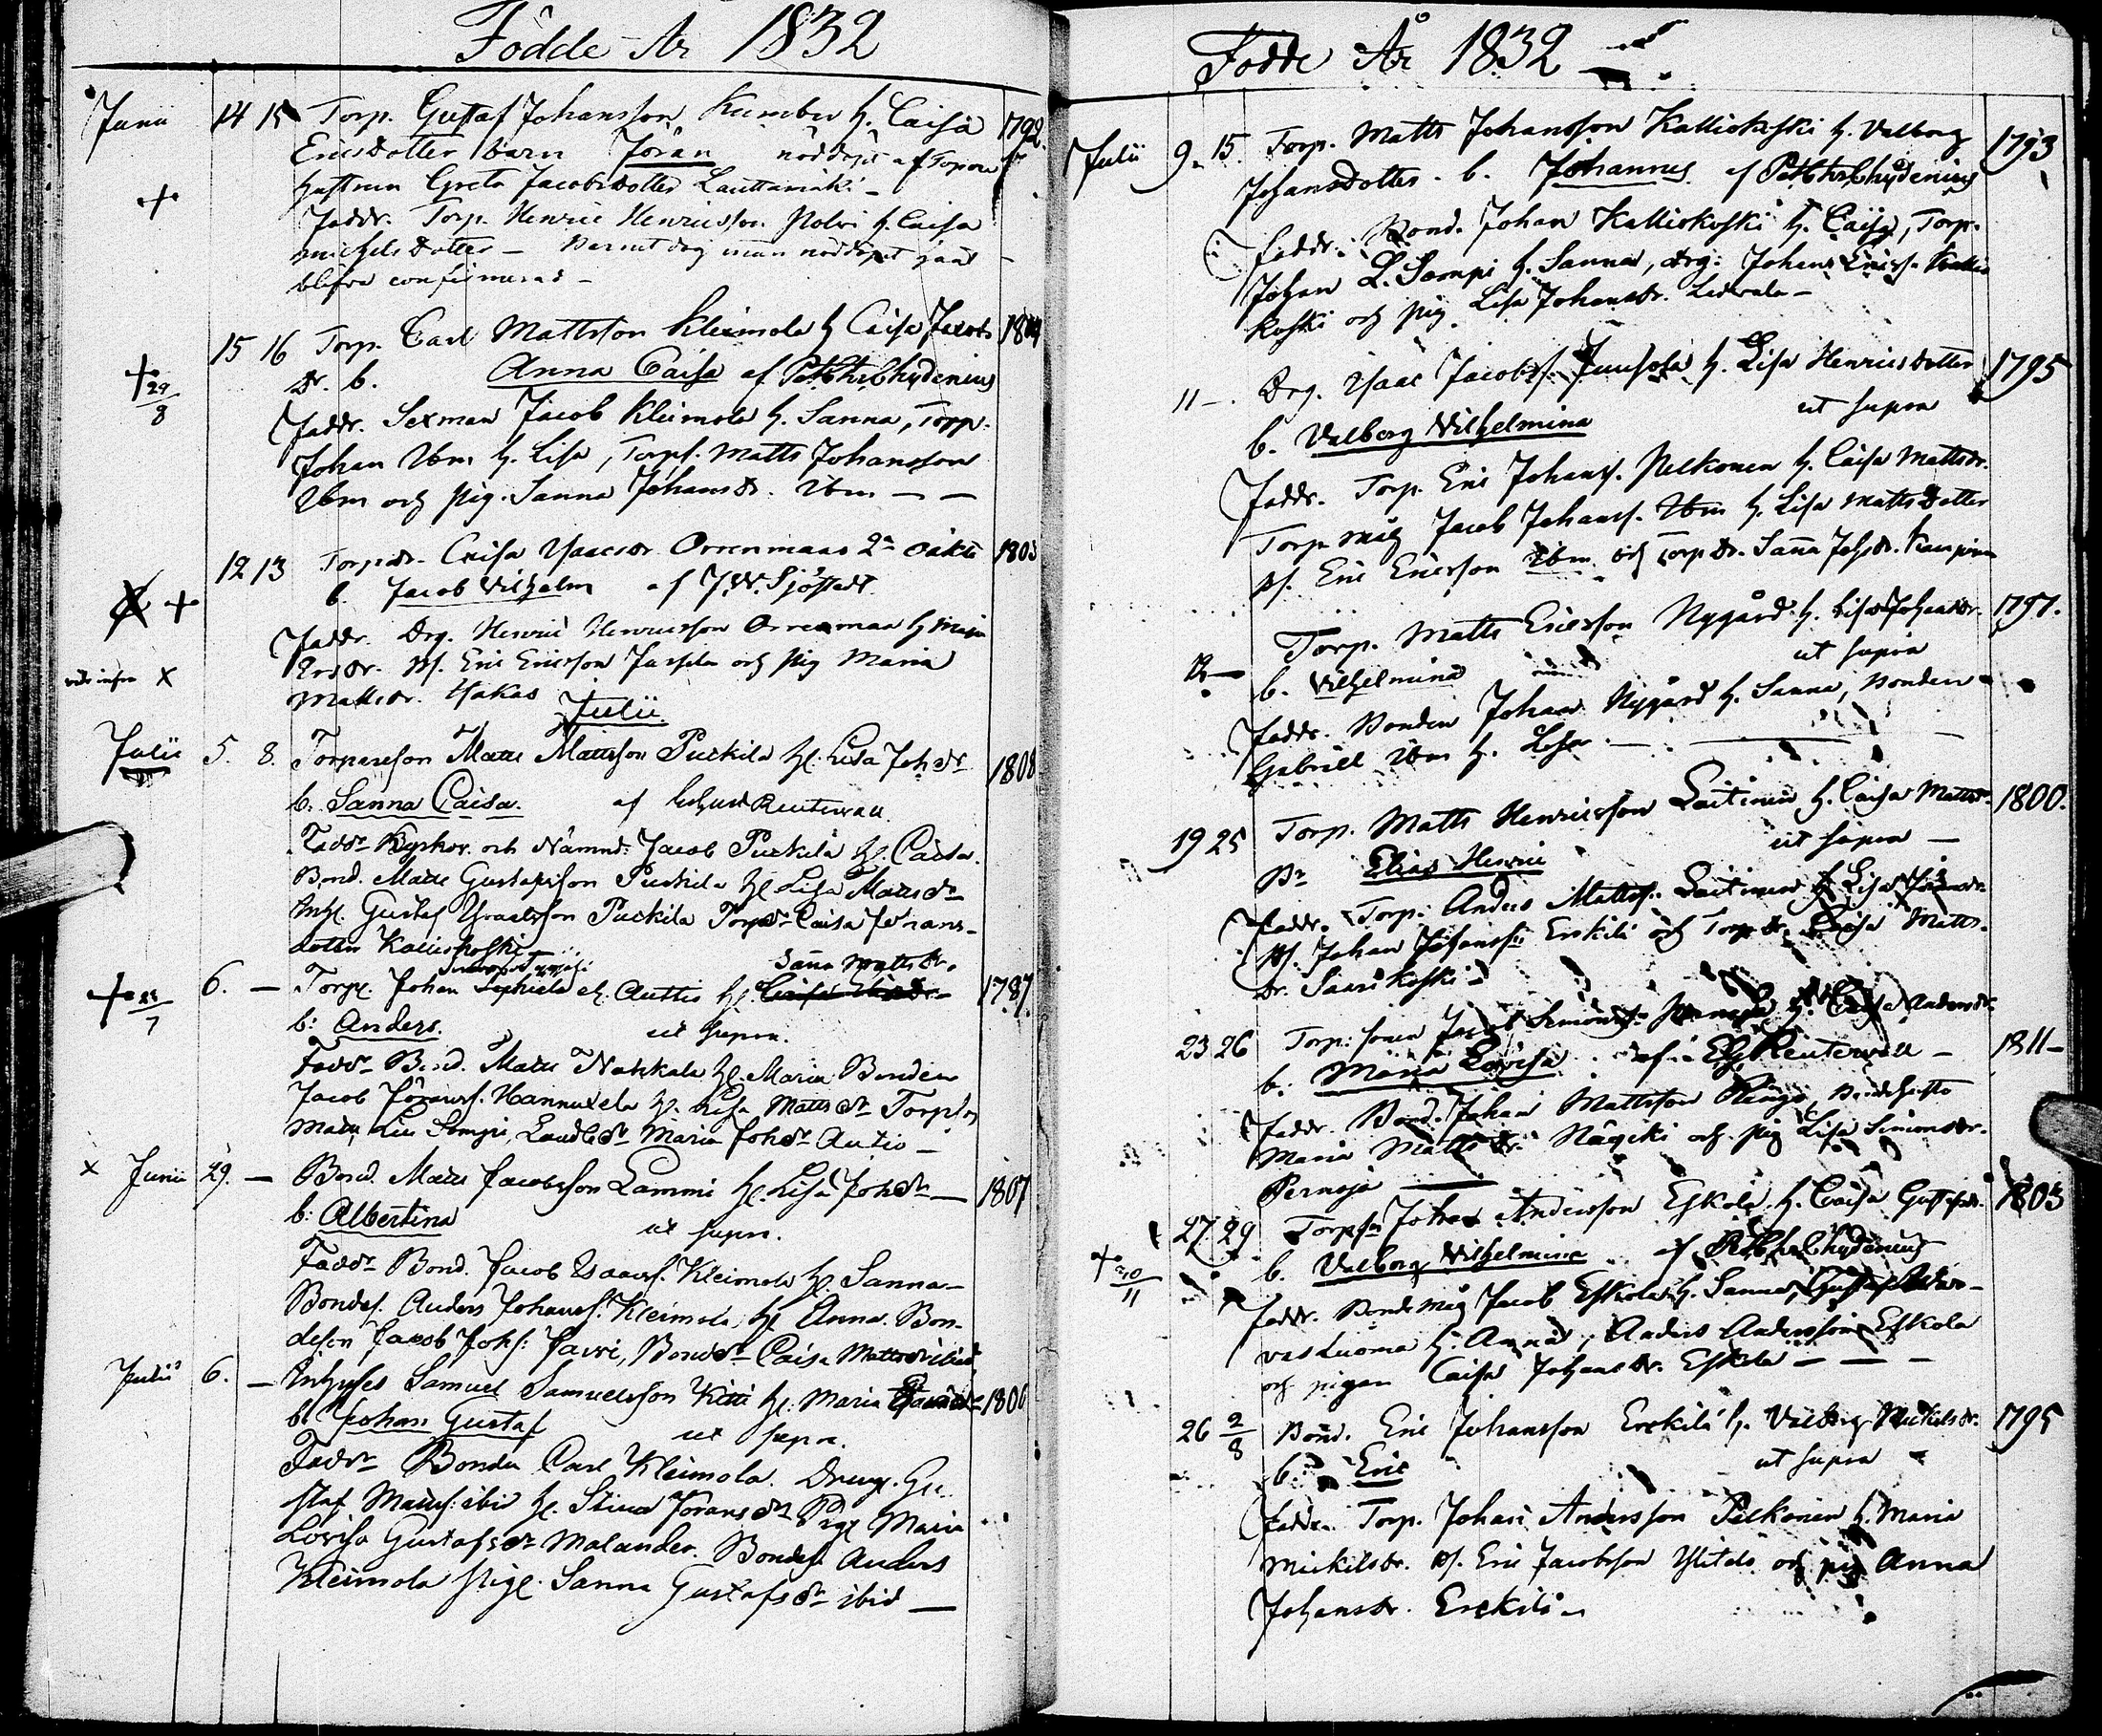 Födde År 1832
Junii 14 15 Torp. Gustaf Johansson Kumbu h. Caisa 1792
Ericsdotter barn Jöran nöddöpt af Torpare
hustrun Greta Jacobsdotter Lauttamäki
+
Faddr. Torp. Henric Henricsson Polvi h. Caisa
Michelsdotter – Barnet dog innan nöddopet hade
blifva confirmerad –
15 16 Torp. Carl Mattsson Kleimola h. Caisa Jacobs 1804
dr. b. Anna Caisa af Chydenius
+ 29/8
Faddr. Sexman Jacob Kleimola h. Sanna, Torp.
Johan Ibm h. Lisa, Torps. Matts Johansson
Ibm och pig. Sanna Johansdr. Ibm – –
12 13 Torpdr. Caisa Isaacsdr. Orrenmaa 2a oäkta 1805
b. Jacob Vilhelm af Sjöstedt
+
Faddr. Drg. Henric Henricsson Orrenmaa h Maja
Ersdr. Bs. Eric Ericsson Juspila och pig Maria
vide infra x
Mattsdr. Hakas
Julii
Julii 5. 8. Torpareson Matts Mattsson Puckila h. Lisa Johdr 1808
b. Sanna Caisa. af Reuterwall
Faddr Kyrkov. och Nämnd: Jacob Puckila h. Caisa.
Bond. Matts Gustafsson Puckila h. Lisa Mattsdr
Inh. Gustaf Isaacsson Puckila Torpdr Caisa Johans-
dotter Kalliokoski –
Sanna Mattsdr.
+ 7 6. – Torp. Johan Autio h. 1787
b: Anders. ut supra.
Faddr Bond. Matts Nakkala h. Maria Bonden
Jacob Hannuxela h. Lisa Mattsdr Torps
Matts Sompi, Maria Johdr Autio –
x Junii 29. – Bond. Matts Jacobsson Lammi h. Lisa Johdr – 1807
b: Albertina ut supra.
Faddr Bond. Jacob Isaacs. Kleimola h. Sanna –
Bondes. Anders Johans. Kleimola, h. Anna. Bon-
deson Jacob Johs: Jawi, Bonddr Caisa Mattsdr ibid
Julii 6. – Inhyses Samuel Samuelsson Kitti h. Maria 1806
b. Johan Gustaf ut supra.
Faddr Bonden Carl Kleimola. Dreng. Gu
staf Matts: ibid h. Stina Pig. Maria
Lovisa Gustafsdr Malander. Bondes. Anders
Kleimola pig. Sanna Gustafsdr ibid –
Födde År 1832 –
Julii 9. 15. Torp. Matts Johansson Kalliokoski h. Valborg 1793
Johansdotter. b. Johannes af Chydenius
Faddr. Bond. Johan Kalliokoski h. Caisa, Torp.
Johan L. Sompi h. Sanna, drg: Johan Erics. Kallio
koski och pig. Lisa Johansdr. –
11 –. Drg. Isaac Jacobs. h. Lisa Henricsdotter 1795
b. Valborg Vilhelmina ut supra
Faddr. Torp. Eric Johans. Pelkonen h. Caisa Mattsdr.
Torp. måg Jacob Johans. Ibm h. Lisa Mattsdotter
Bs. Eric Ericsson Ibm och Torpdr. Sanna Johsdr.
12 – Torp. Matts Ericsson Nygård h. Lisa Johansdr. 1797.
b. Vilhelmina ut supra
Faddr. Bonden Johan Nygård h. Sanna, Bonden
Gabriel Ibm h. Lisa. –
19 25 Torp. Matts Henricsson Laitinen h. Caisa Mattsdr. 1800.
Bn Elias Henric ut supra –
Faddr. Torp. Anders Matts. Laitinen h. Lisa
Bs. Johan Johansson Erkilä och Torp.dr. Caisa Matts-
dr. Saarikoski –
23 26 Torp: sonen Jacob Simonss. h. Caisa Andersdr. 1811 –
b. Maria Lovisa af Reuterwall –
Faddr. Bond. Johan Mattsson Ränge, Bondehustr.
Maria Mattsdr. och pig Lisa Simonsdr.
Pernaja
27 29 Torpsn Johan Andersson Eskola h. Caisa Gustafsdr. 1803
+ 30/11
b. Valborg Vilhelmina af Chydenius
Faddr. Bonde måg Jacob Eskola h. Sanna, Gustaf
vasluoma h. Anna, Anders Andersson Eskola
och pigan Caisa Johansdr. Eskola – – –
26 2/8 Bond. Eric Johansson Erckilä h. Valborg Mickelsdr. 1795
b. Eric ut supra –
Faddr. Torp. Johan Andersson Pelkonen h. Maria
Mickilsdr. Bs. Eric Jacobsson och pig Anna
Johansdr. Erckilä –